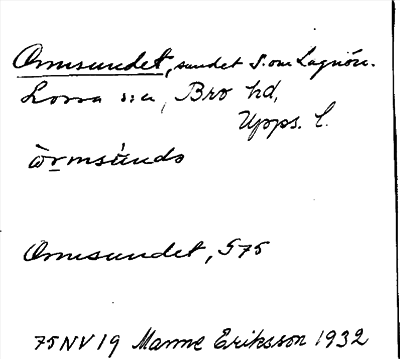 Ormsundet, sundet S. om Lagnön.
Lossa sn, Bro hd,
Upps. l.
òrmsúndə
Ormsundet, S75
75NV19 Manne Eriksson 1932